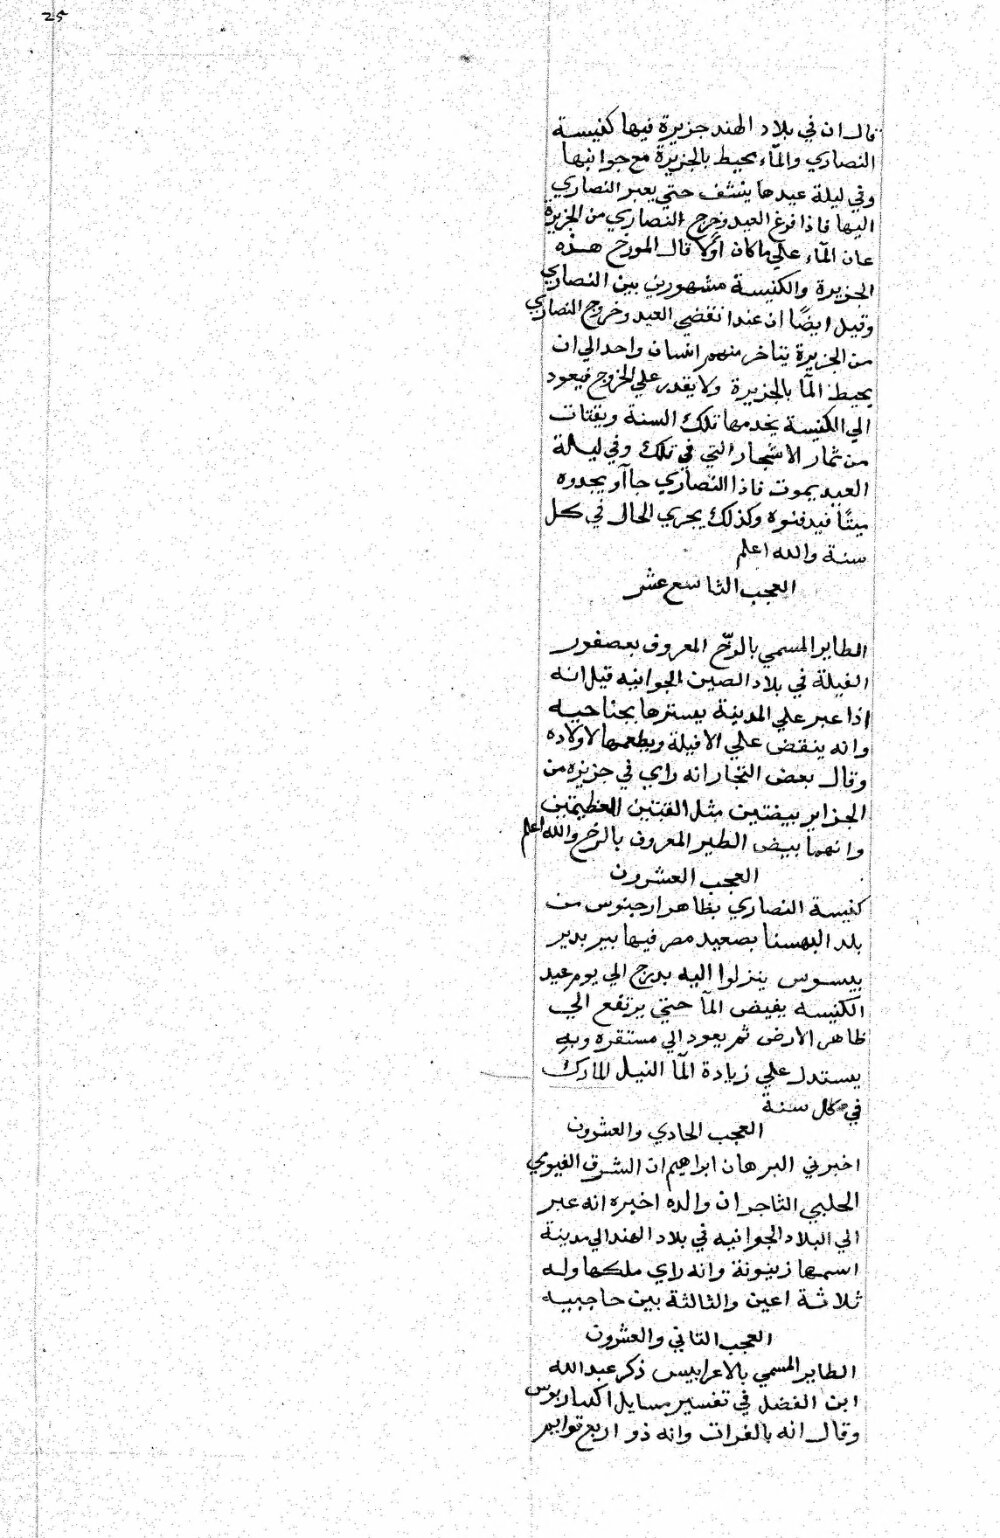 25
قال ان في بلاد الهند جزيرة فيها كنيسة
النصاري والمآء يحيط بالجزيرة مع جوانبها
وفي ليلة عيدها ينشف حتي يعبر النصاري
اليها فاذا فرغ العيد وخرج النصاري من الجزيرة
عان المآء علي ما كان اولًا قال المورخ هذه
الجزيرة والكنيسة مشهورين بين النصاري
وقيل ايضًا ان عند انقضي العيد وخروج النصاري
من الجزيرة يتاخر منهم انسان واحد الي ان
يحيط المآ بالجزيرة ولا يقدر علي الخروج فيعود
الي الكنيسة يخدمها تلك السنة ويقتات
من ثمار الاشجار التي في تلك وفي ليلة
العيد يموت فاذا النصاري جاآو يجدوه
ميتًا فيدفنوه وكذلك يجري الحال في كل
سنة والله اعلم
العجب التاسع عشر
الطاير المسمي بالرخ المعروف بعصفور
الفيلة في بلاد الصين الجوانيه قيل انه
اذا عبر علي المدينة يسترها بجناحيه
وانه ينقض علي الافيلة ويطعمها لاولاده
وقال بعض التجار انه راي في جزيره من
الجزاير بيضتين مثل القبتين العظيمتين
وانهما بيض الطير المعروف بالرخ والله اعلم
العجب العشرون
كنيسة النصاري بظاهر ارجنوس من
بلد البهسنا بصعيد مصر فيها بير بدير
بيسوس ينزلوا اليه بدرج الي يوم عيد
الكنيسه يفيض المآ حتي يرتفع الي
ظاهر الارض ثم يعود الي مستقره وبه
يستدل علي زيادة المآ النيل المبارك
في كل سنة
العجب الحادي والعشرون
اخبرني البرهان ابراهيم ان الشرف الفيومي
الحلبي التاجر ان والده اخبره انه عبر
الي البلاد الجوانيه في بلاد الهند الي مدينة
اسمها زيتونة وانه راي ملكها وله
ثلاثة اعين والثالثة بين حاجبيه
العجب الثاني والعشرون
الطاير المسمي بالاعرابيس ذكر عبد الله
ابن الفضل في تفسير مسايل
وقال انه بالفرات وانه ذو اربع قوايم